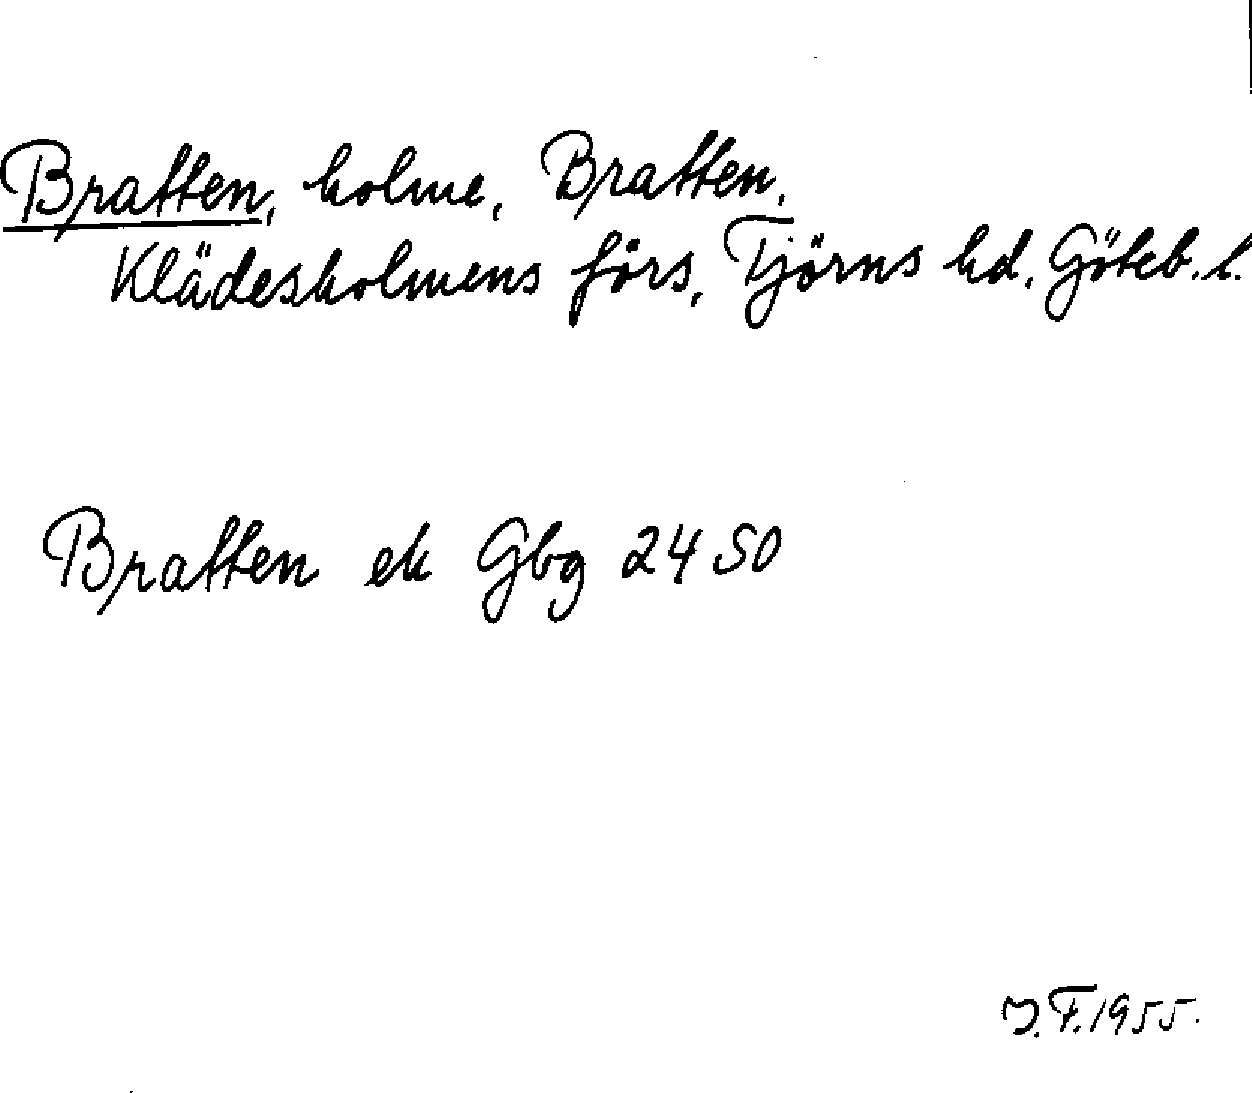 Bratten, holme, Bratten,
Klädesholmens förs, Tjörns hd. Göteb. l.
Bratten ek Gbg 2450
J. F. 1955.